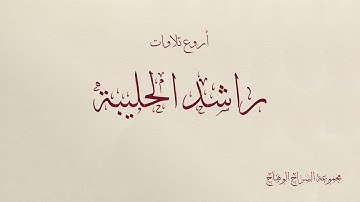 أروع تلاوات
راشد الحليبة
مجموعة السراج الوهاج